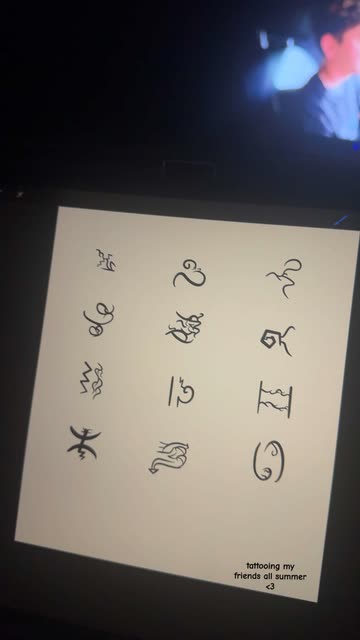 tattooing my
friends all summer
<3